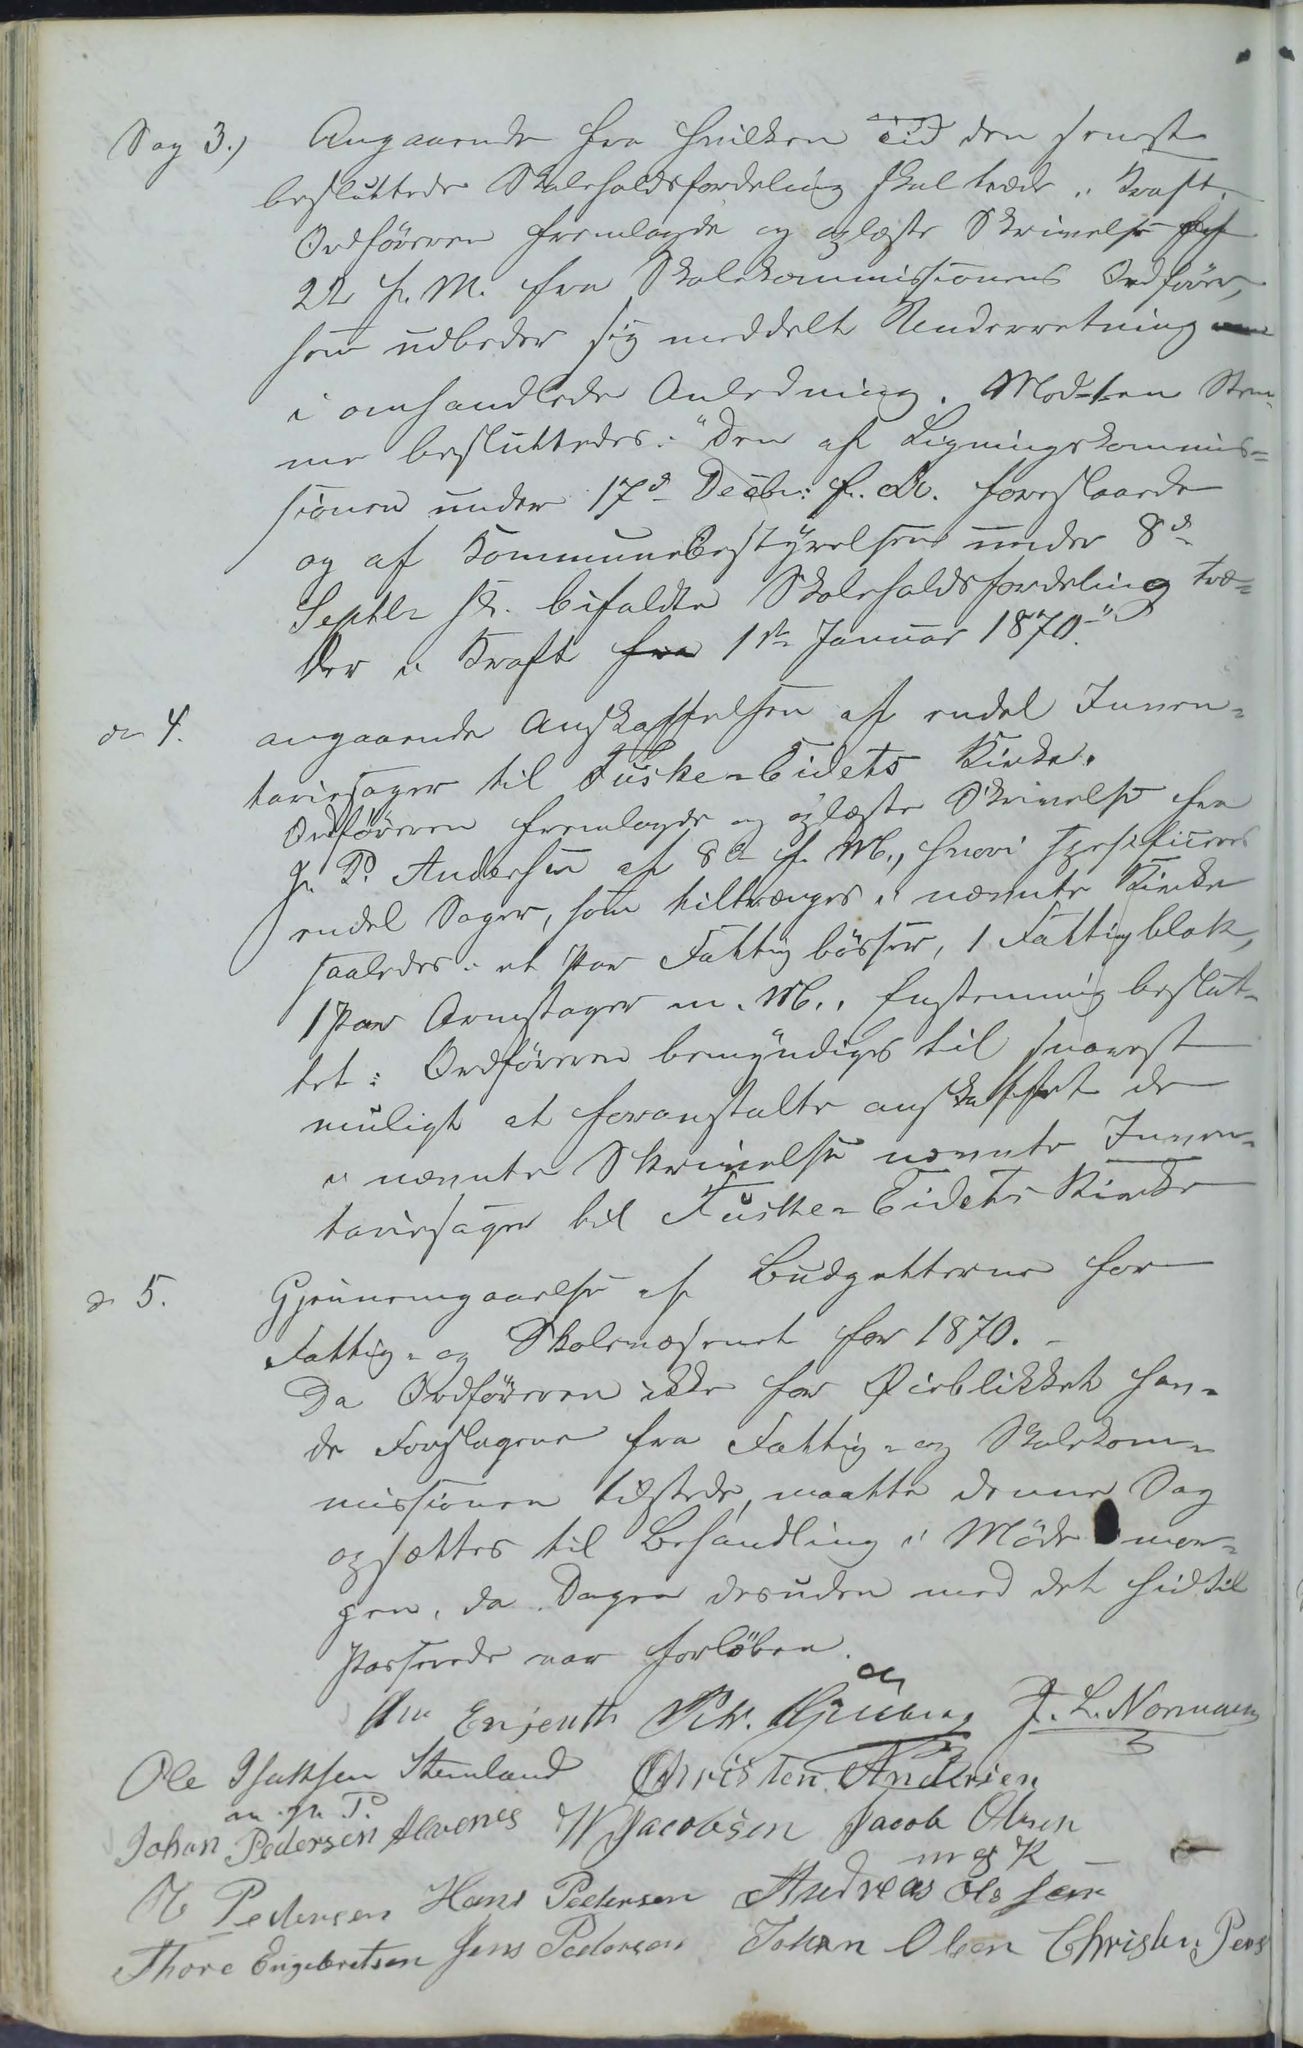 Sag 3.) Angaaende fra hvilken Tid den senest
besluttede Skoleholdsfordeling skal træde i Kraft.
Ordføreren fremlagde og oplæste Skrivelse af
22 f. M. fra Skolekommissionens Ordfører,
som udbeder sig meddelt Underretning
i omhandlede Anledning. Mod 1 en Stem-
me besluttedes: "Den af Ligningskommis-
sionen under 17d Decbr: f. A. foreslaaede
og af Kommunebestyrelsen under 8d
Septbr bifaldte Skoleholdsfordeling træ-
der i Kraft fra 1ste Januar 1870."
4. angaaende Anskaffelsen af endel Inven-
tariesager til Fuske-Eidets Kirke.
Ordføreren fremlagde og oplæste Skrivelse fra
P. Andersen af 8de f. M., hvori specificeres
endel Sager, som tiltrænges i nævnte Kirke
saaledes: et Par Fattigbösser, 1 Fattigblok,
1 Par Armstager m. M.. Enstemmig beslut-
tet: Ordføreren bemyndiges til snarest
muligt at foranstalte anskaffet de
i nævnte Skrivelse nævnte Inven-
tariesager til Fuske-Eidets Kirke
5. Gjennemgaaelse af Budgetterne for
Fattig- og Skolevæsenet for 1870. -
Da Ordføreren ikke for Øieblikket hav-
de Forslagene fra Fattig- og Skolekom-
missionen tilstede, maatte denne Sag
opsættes til Behandling i Møde i mor-
gen, da Dagen desuden med det hidtil
Passerede var forløben.
Enjeuth J. L. Normann
Ole Isaksen Stemland Christen Andersen
m. p. P.
Johan Pedersen Alvenes W Jacobsen Jacob Olsen
Pedersen Hans Pedersen Andreas Olsen
Thore Engebretsen Jens Pedersen Johan Olsen Christen Peds